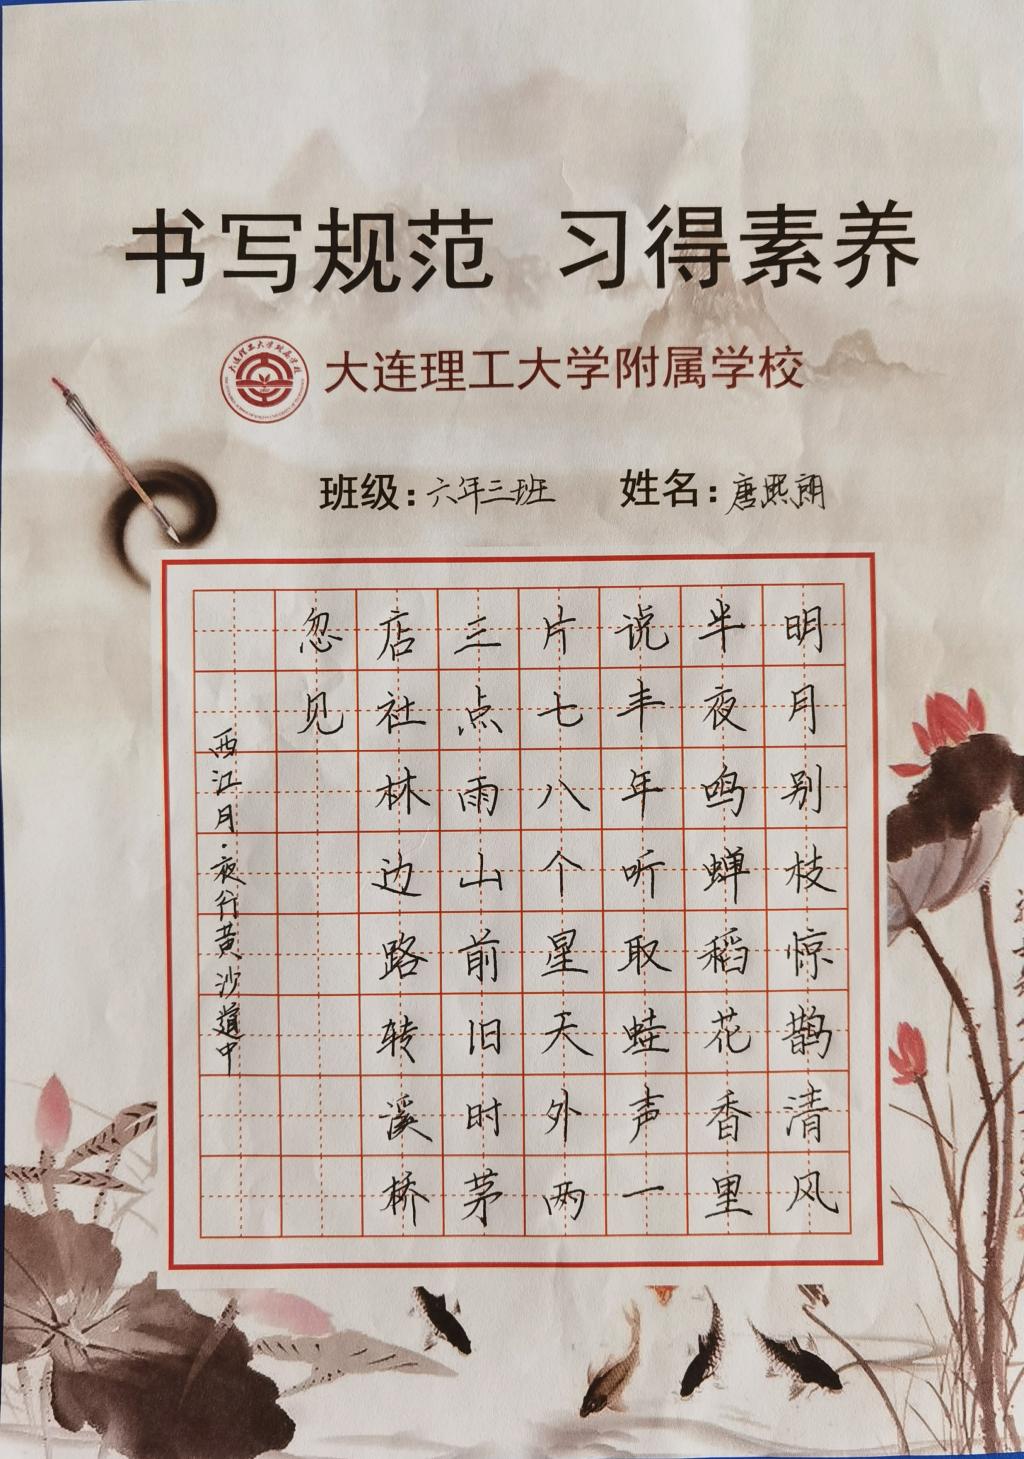 书写规范 习得素养
大连理工大学附属学校
班级:六年三班 姓名:唐熙朗
明月别枝惊鹊清风
半夜鸣蝉稻花香里
说丰年听取蛙声一
片七八个星天外两
三点雨山前旧时茅
店社林边路转溪桥
忽见
西江月·夜行黄沙道中